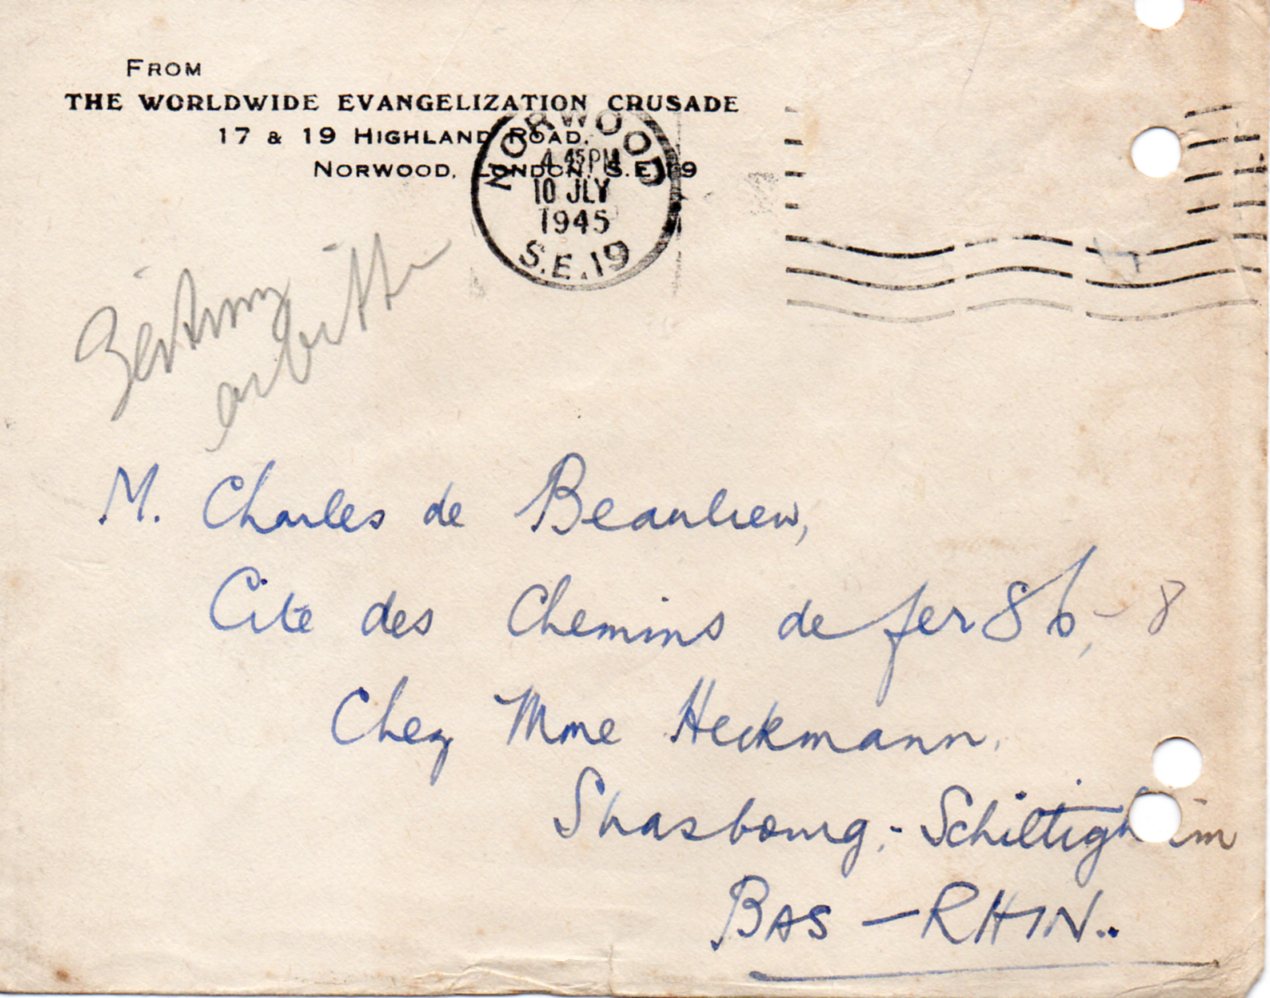 From
THE WORLDWIDE EVANGELIZATION CRUSADE
17 & 19 Highland Road,
Norwood, London, S.E.19
NORWOOD
4 45PM
10 JLY
1945
S.E.19
M. Charles de Beaulieu,
Cité des Chemins de fer 86, - 8
Chez Mme Heckmann.
Strasbourg - Schiltigh im
BAS - RHIN..